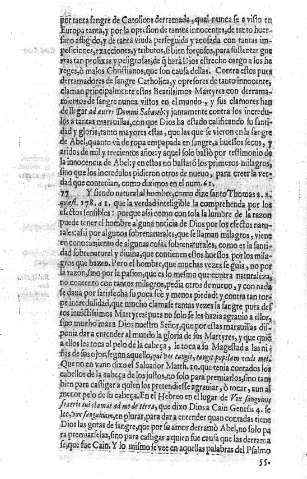 por tanta sangre de Catolicos derramada, qual nunca se a visto en
Europa tanta, y por la opresion de tantos innocentes, de tanto huer-
fano afligido, y de tanta viuda perseguida y acosada con tantas im-
posiciones, exacciones, y tributos, si bien forçosos, para sustentar gue
rras tan prolixas y peligrosas, de q̃ herà Dios estrecho cargo a los he
reges, ò malos Christianos, que son causa dellas. Contra estos pues
derramadores de sangre Catholica, y opresores de tanto innocente,
claman principalmente estos Beatissimos Martyres con derrama-
mientos de sangre nunca vistos en el mundo, y sus clamores han
de llegar ad aures Domini Sabaoth; juntamente contra los incredu-
los a tantas marauillas, con que Dios ha estado calificando su santi-
dad y gloria, tanto mayores estas, que las que se vieron en la sangre
de Abel, quanto và de ropa empapada en sangre, a huessos secos, y
aridos de mil y trecientos años; y aquel solo bastò por testimonio de
la innocencia de Abel: y en estos no bastaron los primeros milagros,
sino que los incredulos pidieron otros de nueuo, para creer la ver-
dad que contenian, como diximos en el num. 62.
77 Y siendo natural al hombre, como dize santo Thomas 2. 2.
quæst. 178. a 1. que la verdad inteligible la comprehenda por los
efectos sensibles: porque assi como con sola la lumbre de la razon
puede tener el hombre alguna noticia de Dios por los efectos natu-
rales: assi por algunos sobrenaturales, que se llaman milagros, viene
en conocimiento de algunas cosas sobrenaturales, como es la santi-
dad sobrenatural y diuina, que contienen essos huessos por los mila-
gros que hazen. Pero el hombre, que muchas vezes se guia, no por
la razon, sino por la passion, que es lo mesmo que contra naturaleza,
no contento con tantos milagros, pedia otros de nueuo, y con nada
se daua por satisfecha su poca fee y menos piedad: y contra tan tor-
pe incredulidad, que mucho clamasse tantas vezes la sangre pura des
tos inuictissimos Martyres: pues no solo se les hazia agrauio a ellos,
sino mucho mas a Dios nuestro Señor, que por estas marauillas dis-
ponia dar a entender al mundo la gloria de sus Martyres, y que quiẽ
a ellos les toca al pelo de la cabeça, le toca a su Magestad a las ni-
ñas de sus ojos, segun aquello, qui vos tangit, tangit pupillam oculi mei.
Que no en vano dixo el Saluador Matth. 10. que tenia contados los
cabellos de la cabeça de los justos, no solo para premiarlos, sino tam
bien para castigar a quien los pretendiesse agrauiar, ò tocar, aun al
menor pelo de su cabeça. En el Hebreo en el lugar de Vox sanguinis
fratris tui clamat ad me de terra, que dixo Dios a Cain Genesis 4. se
lee, vox sanguinum, en plural, para dar a entender quan contadas tiene
Dios las gotas de sangre, que por su amor derramò Abel, no solo pa
ra premiarselas, sino para castigar a quien fue causa que las derrama
se, que fue Cain. Y lo mismo se vee en aquellas palabras del Psalmo
55.